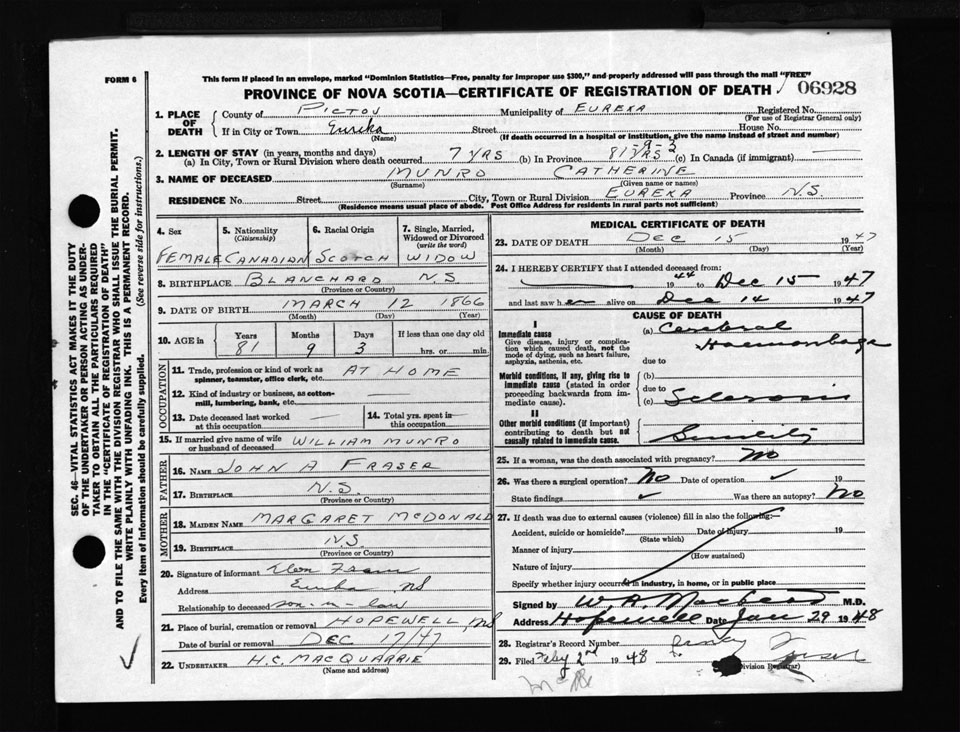 FORM 6
This form if placed in an envelope, marked "Dominion Statistics—Free, penalty for improper use $300," and properly addressed will pass through the mail "FREE"
PROVINCE OF NOVA SCOTIA—CERTIFICATE OF REGISTRATION OF DEATH 06928
1. PLACE OF DEATH
County of PICTOU Municipality of EUREKA Registered No.
(For use of Registrar General only)
If in City or Town Eureka Street House No.
(Name) (If death occurred in a hospital or institution, give the name instead of street and number)
2. LENGTH OF STAY (in years, months and days)
(a) In City, Town or Rural Division where death occurred 7 YRS (b) In Province 81 YRS -9-3 (c) In Canada (if immigrant) —
3. NAME OF DECEASED MUNRO CATHERINE
(Surname) (Given name or names)
RESIDENCE No. Street City, Town or Rural Division EUREKA Province N.S.
(Residence means usual place of abode. Post Office Address for residents in rural parts not sufficient)
4. Sex 5. Nationality (Citizenship) 6. Racial Origin 7. Single, Married, Widowed or Divorced (write the word)
FEMALE CANADIAN SCOTCH WIDOW
8. BIRTHPLACE BLANCHARD N.S.
(Province or Country)
9. DATE OF BIRTH MARCH 12 1866
(Month) (Day) (Year)
10. AGE in Years Months Days If less than one day old
81 9 3 hrs. or min.
OCCUPATION
11. Trade, profession or kind of work as spinner, teamster, office clerk, etc. AT HOME
12. Kind of industry or business, as cotton-mill, lumbering, bank, etc. —
13. Date deceased last worked at this occupation — 14. Total yrs. spent in this occupation —
15. If married give name of wife or husband of deceased WILLIAM MUNRO
FATHER
16. NAME JOHN A FRASER
17. BIRTHPLACE N.S.
(Province or Country)
MOTHER
18. MAIDEN NAME MARGARET McDONALD
19. BIRTHPLACE N.S.
(Province or Country)
20. Signature of informant
Address Eureka, NS
Relationship to deceased son-in-law
21. Place of burial, cremation or removal HOPEWELL, NS
Date of burial or removal DEC 17/47
22. UNDERTAKER H.C. MACQUARRIE
(Name and address)
MEDICAL CERTIFICATE OF DEATH
23. DATE OF DEATH Dec 15 1947
(Month) (Day) (Year)
24. I HEREBY CERTIFY that I attended deceased from:
1944 to Dec 15 1947
and last saw her alive on Dec 14 1947
CAUSE OF DEATH
I
Immediate cause (a) Cerebral
Give disease, injury or complication which caused death, not the mode of dying, such as heart failure, asphyxia, asthenia, etc. Haemorrhage
due to
Morbid conditions, if any, giving rise to immediate cause (stated in order proceeding backwards from immediate cause). (b)
due to
(c) Sclerosis
II
Other morbid conditions (if important) contributing to death but not causally related to immediate cause. Senility
25. If a woman, was the death associated with pregnancy? No
26. Was there a surgical operation? No Date of operation 19
State findings Was there an autopsy? No
27. If death was due to external causes (violence) fill in also the following:—
Accident, suicide or homicide? Date of injury 19
(State which)
Manner of injury
(How sustained)
Nature of injury
Specify whether injury occurred in industry, in home, or in public place
Signed by W. A. MacLeod M.D.
Address Hopewell Date Jan 29 1948
28. Registrar's Record Number
29. Filed Feby 2nd 1948
(Division Registrar)
SEC. 46—VITAL STATISTICS ACT MAKES IT THE DUTY
OF THE UNDERTAKER OR PERSON ACTING AS UNDER-
TAKER TO OBTAIN ALL THE PARTICULARS REQUIRED
IN THE "CERTIFICATE OF REGISTRATION OF DEATH"
AND TO FILE THE SAME WITH THE DIVISION REGISTRAR WHO SHALL ISSUE THE BURIAL PERMIT.
WRITE PLAINLY WITH UNFADING INK. THIS IS A PERMANENT RECORD.
Every item of Information should be carefully supplied. (See reverse side for instructions.)